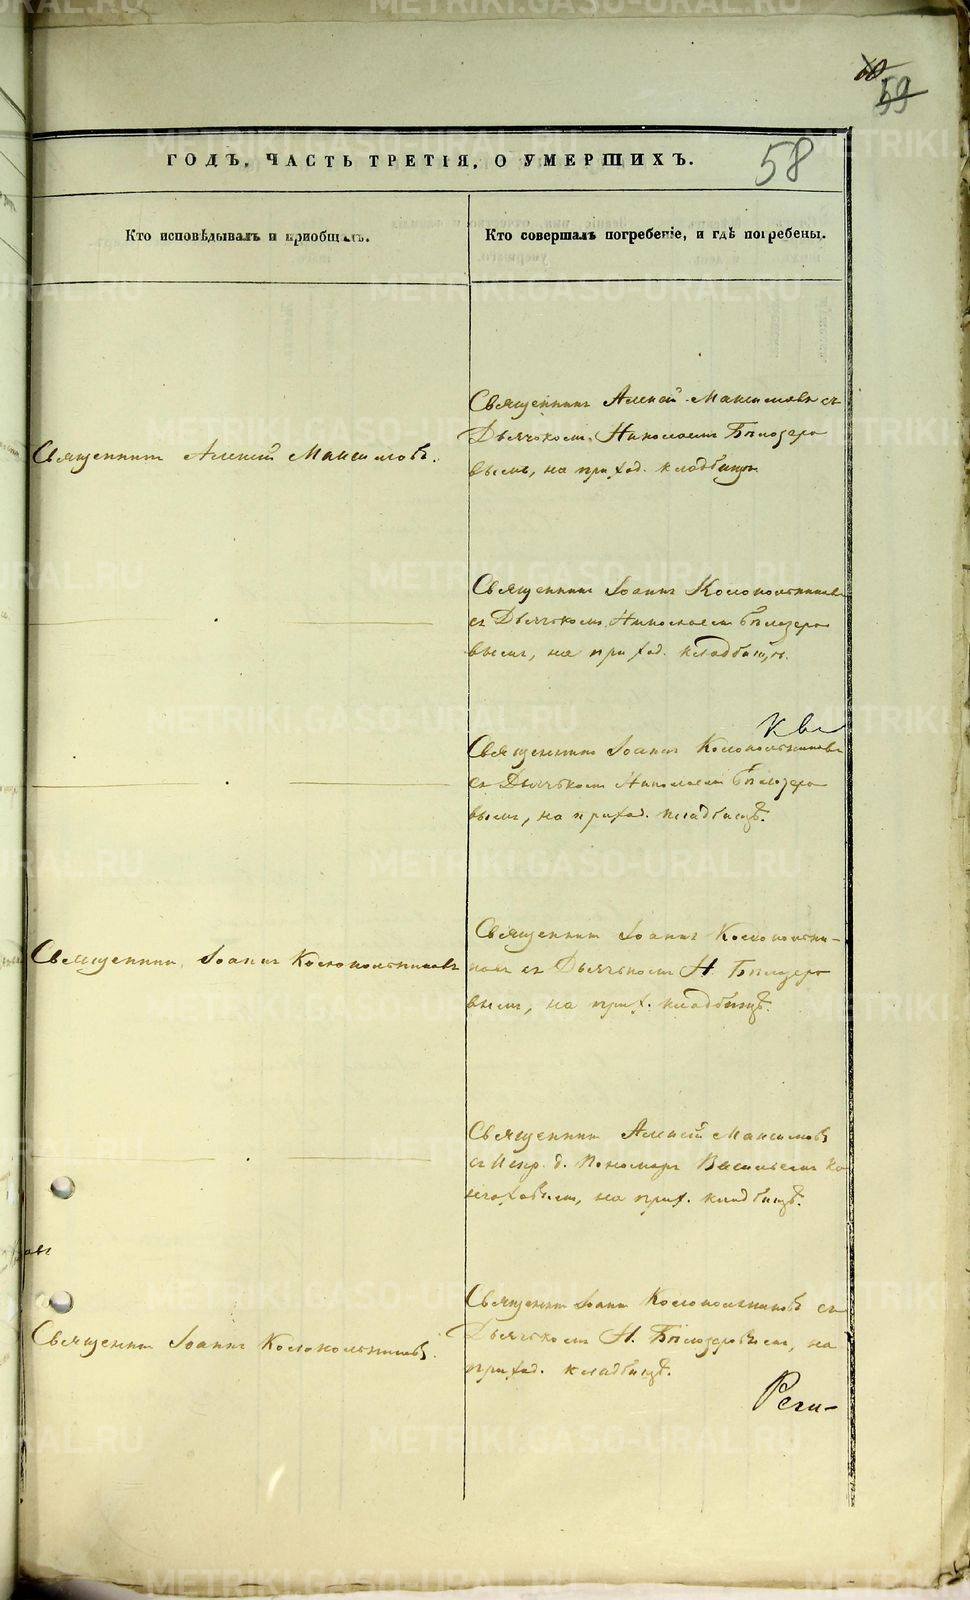 59
58
ГОДЪ, ЧАСТЬ ТРЕТІЯ, О УМЕРШИХЪ.
Кто исповѣдывалъ и приобщалъ.
Кто совершалъ погребеніе, и гдѣ погребены.
Священникъ Алексѣй Максимовъ.
Священникъ Алексѣй Максимовъ съ
Дьячкомъ Николаемъ Бѣлозеро
вымъ, на приход. кладбищѣ
Священникъ Іоаннъ Колокольниковъ
съ Дьячкомъ Николаемъ Бѣлозеро
вымъ, на приход. кладбищѣ.
Священникъ Іоаннъ Колокольниковъ
съ Дьячкомъ Николаемъ Бѣлозеро
вымъ, на приход. кладбищѣ.
Священникъ Іоаннъ Колокольниковъ
Священникъ Іоаннъ Колокольни-
ковъ съ Дьячкомъ Н. Бѣлозеро
вымъ, на прих. кладбищѣ.
Священникъ Алексѣй Максимовъ
съ Испр. д. Пономаря Васильемъ
на прих. кладбищѣ.
Священникъ Іоаннъ Колокольниковъ.
Священникъ Іоаннъ Колокольниковъ съ
Дьячкомъ Н. Бѣлозеровымъ, на
приход. кладбищѣ.
METRIKI.GASO-URAL.RU